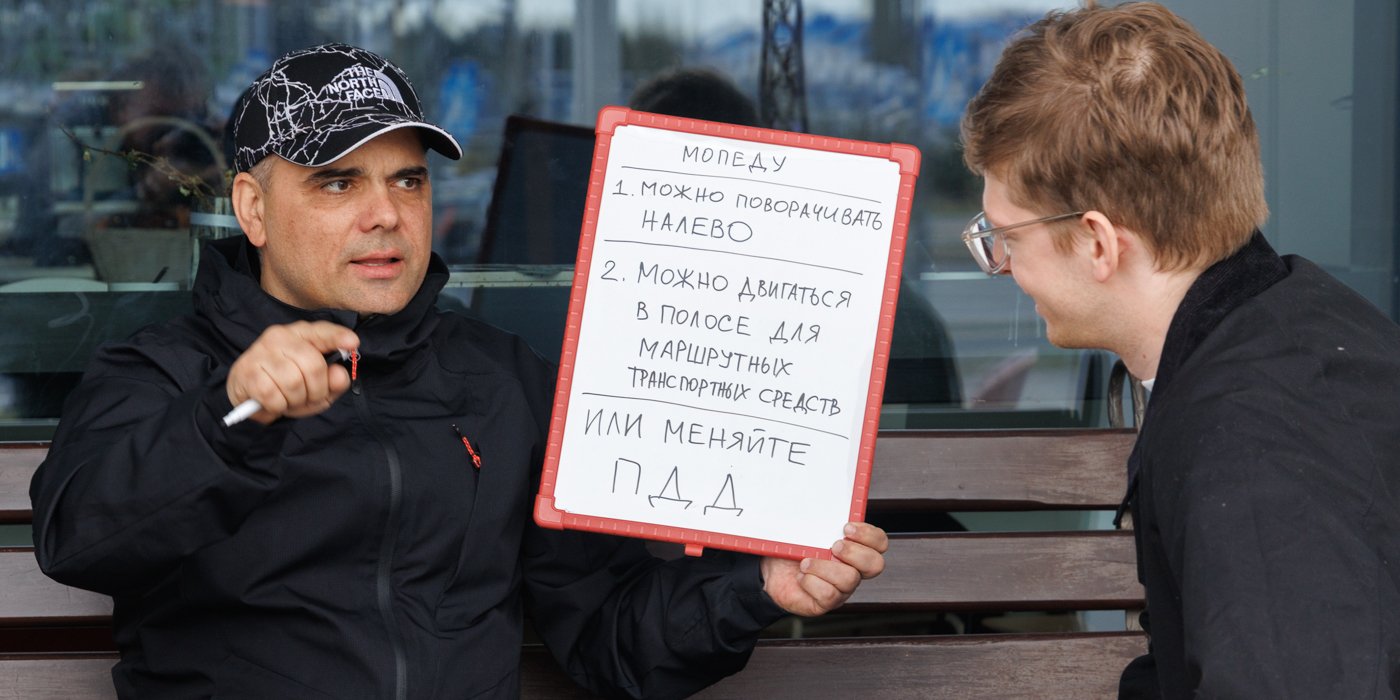 THE
NORTH
FACE
МОПЕДУ
1. МОЖНО ПОВОРАЧИВАТЬ
НАЛЕВО
2. МОЖНО ДВИГАТЬСЯ
В ПОЛОСЕ ДЛЯ
МАРШРУТНЫХ
ТРАНСПОРТНЫХ СРЕДСТВ
ИЛИ МЕНЯЙТЕ
ПДД